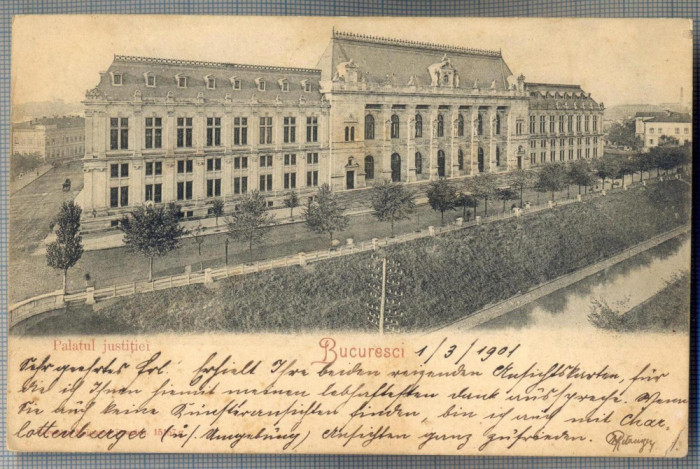 Palatul justiției
Bucuresci 1/3/1901
Sehr geehrtes Frl. Erhielt Ihre beiden reizenden Ansichtskarten, für
die ich Ihnen hiemit meinen lebhaftesten dank ausspreche. Wenn
Sie auch keine Künstleransichten finden, bin ich auch mit Char-
lottenburger (u/. Umgebung) Ansichten ganz zufrieden.